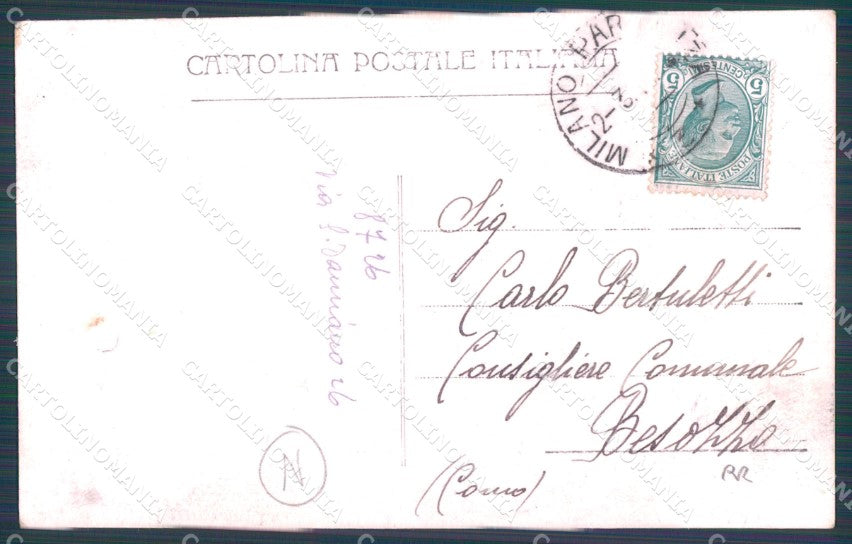 CARTOLINA POSTALE ITALIANA
MILANO PAR
21
POSTE ITALIANE
5 CENTESIMI 5
Sig.
Carlo Bertuletti
Consigliere Comunale
Besozzo
(Como)
RR
8726
Via S. Damiano 26
CARTOLINOMANIA